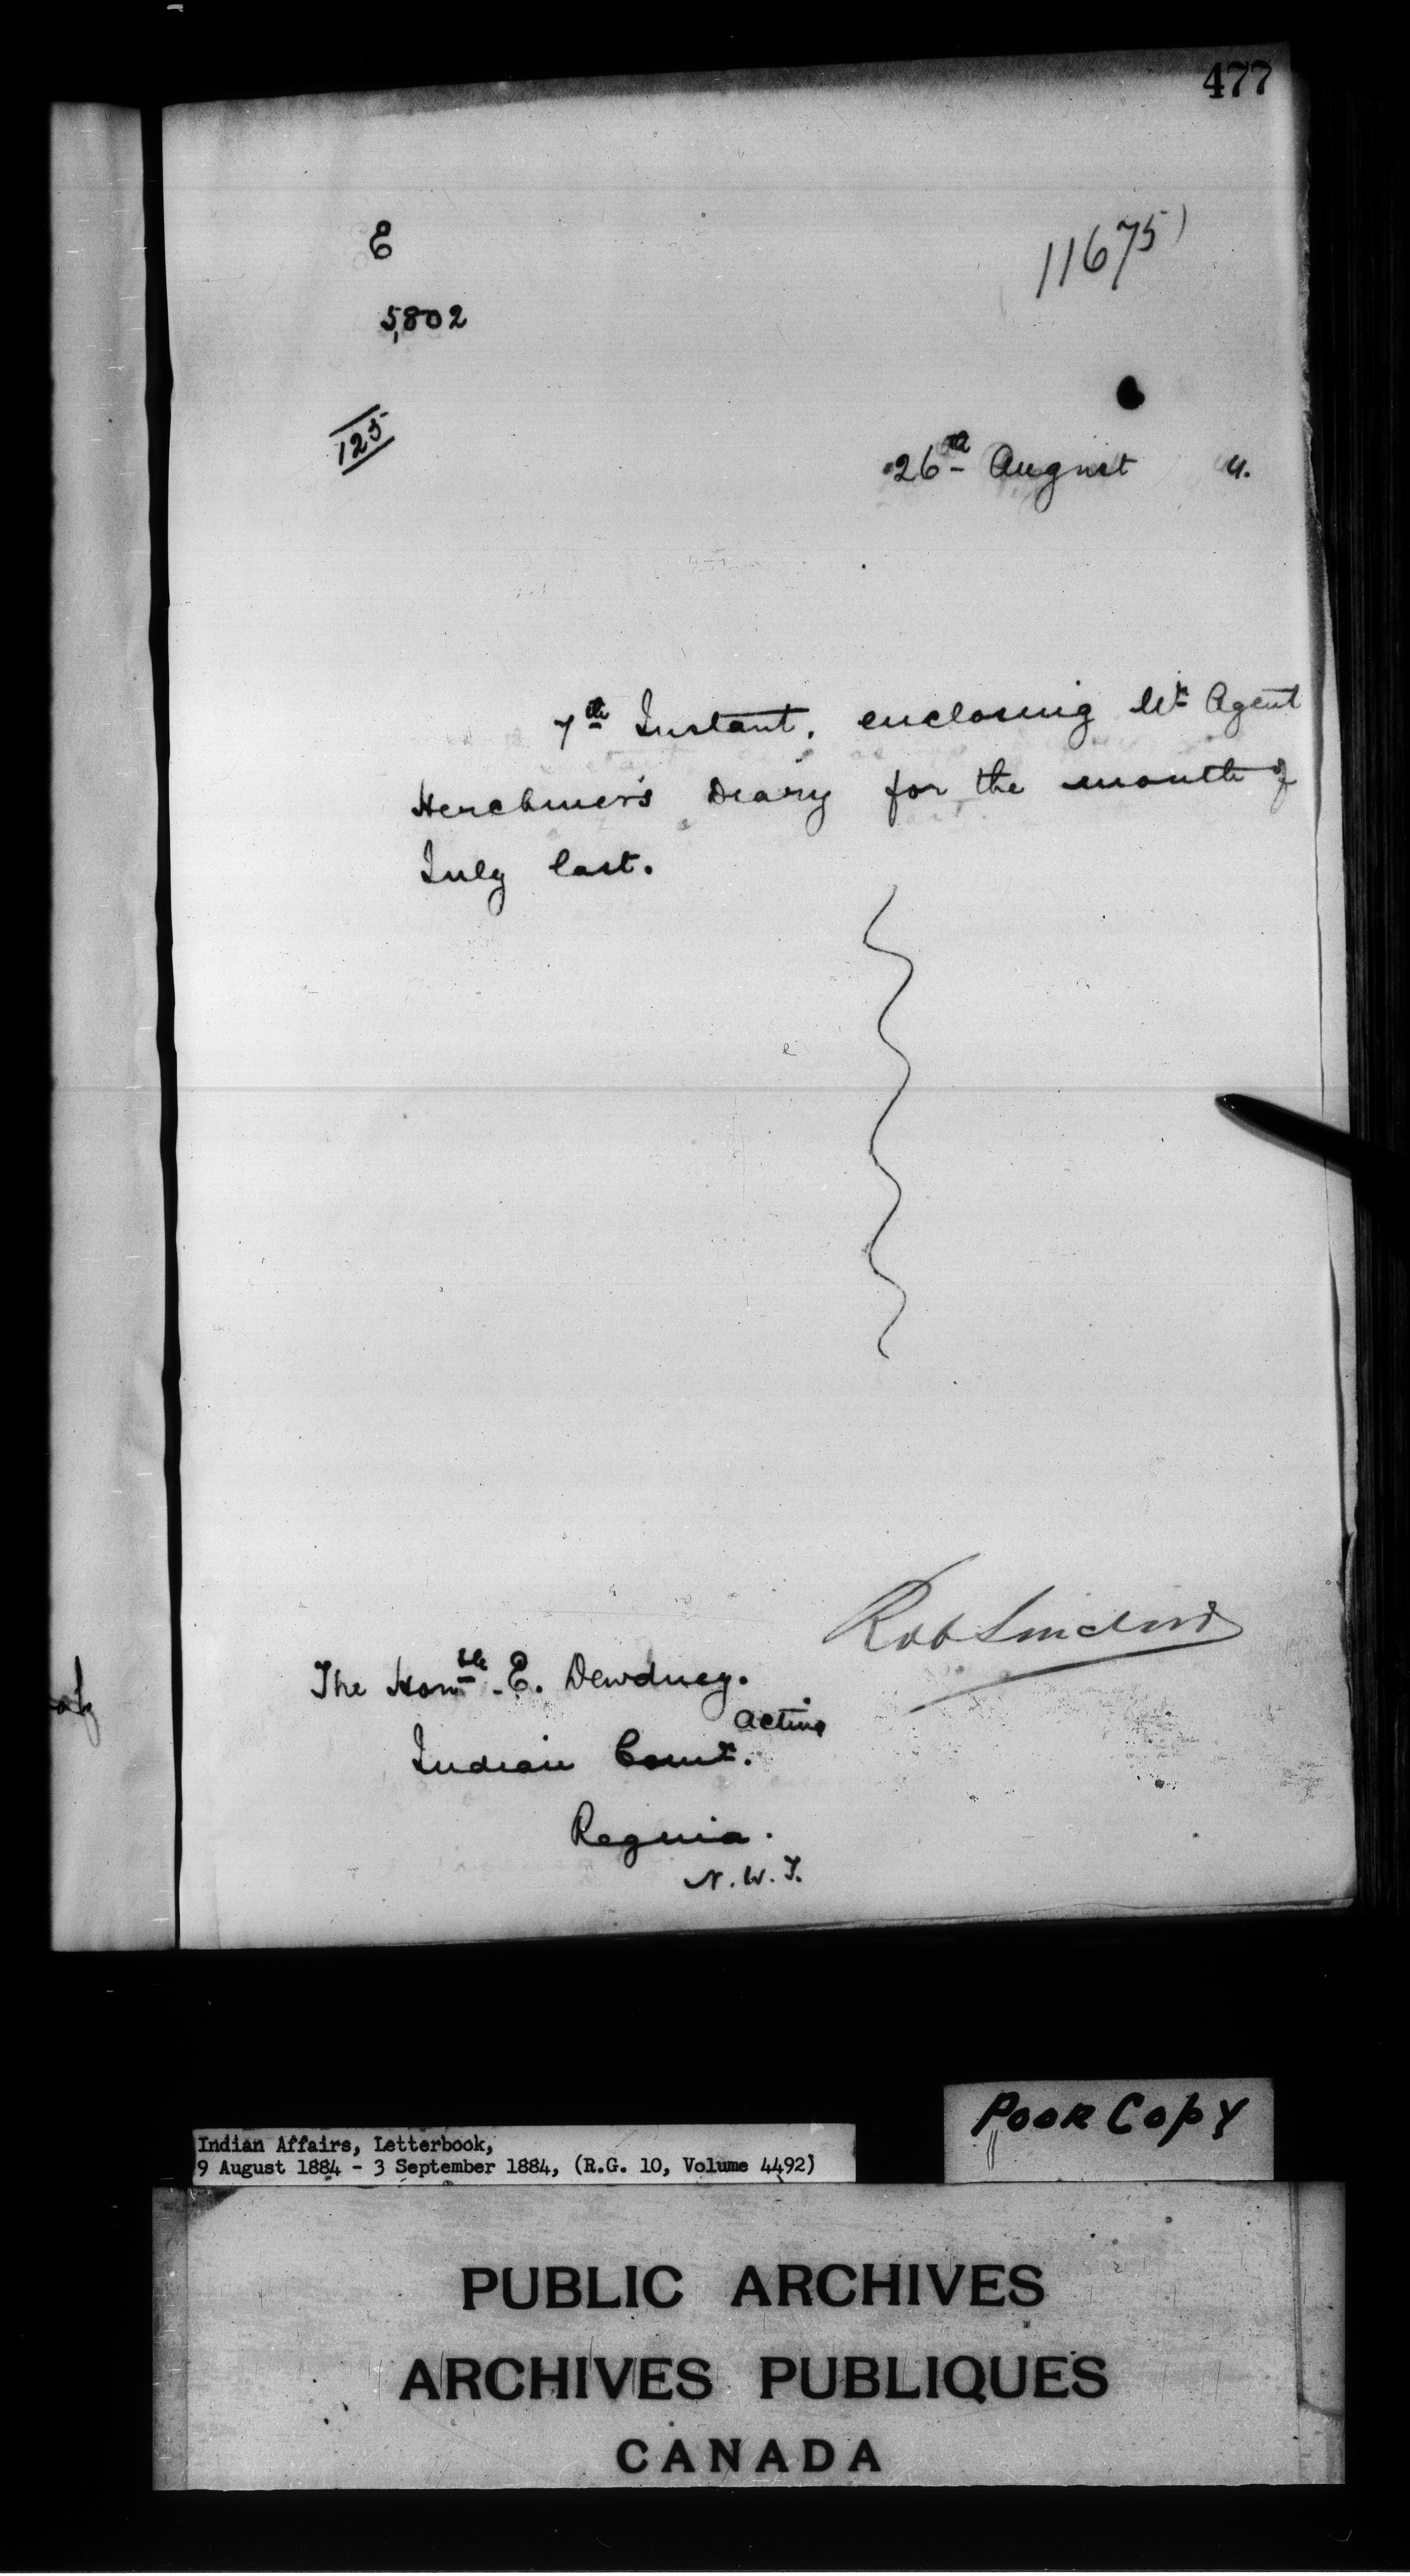 477
E
11675
5,802
125
26th August 4.
7th Instant, enclosing Mr Agent
Herchmer's Diary for the month of
July last.
Rob Sinclair
The Honble E. Dewdney.
acting
Indian Comr.
Regina.
N.W.T.
Poor Copy
Indian Affairs, Letterbook,
9 August 1884 - 3 September 1884, (R.G. 10, Volume 4492)
PUBLIC ARCHIVES
ARCHIVES PUBLIQUES
CANADA